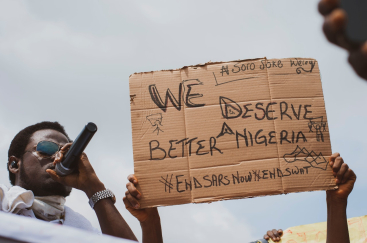 #Soro Soke
WE DESERVE
BETTER A NIGERIA
#EndSARS Now #EndSWAT